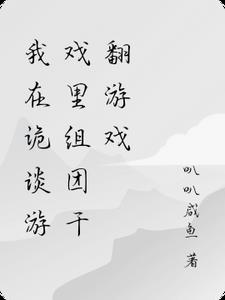 我在诡谈游
戏里组团干
翻游戏
叭叭咸鱼 著